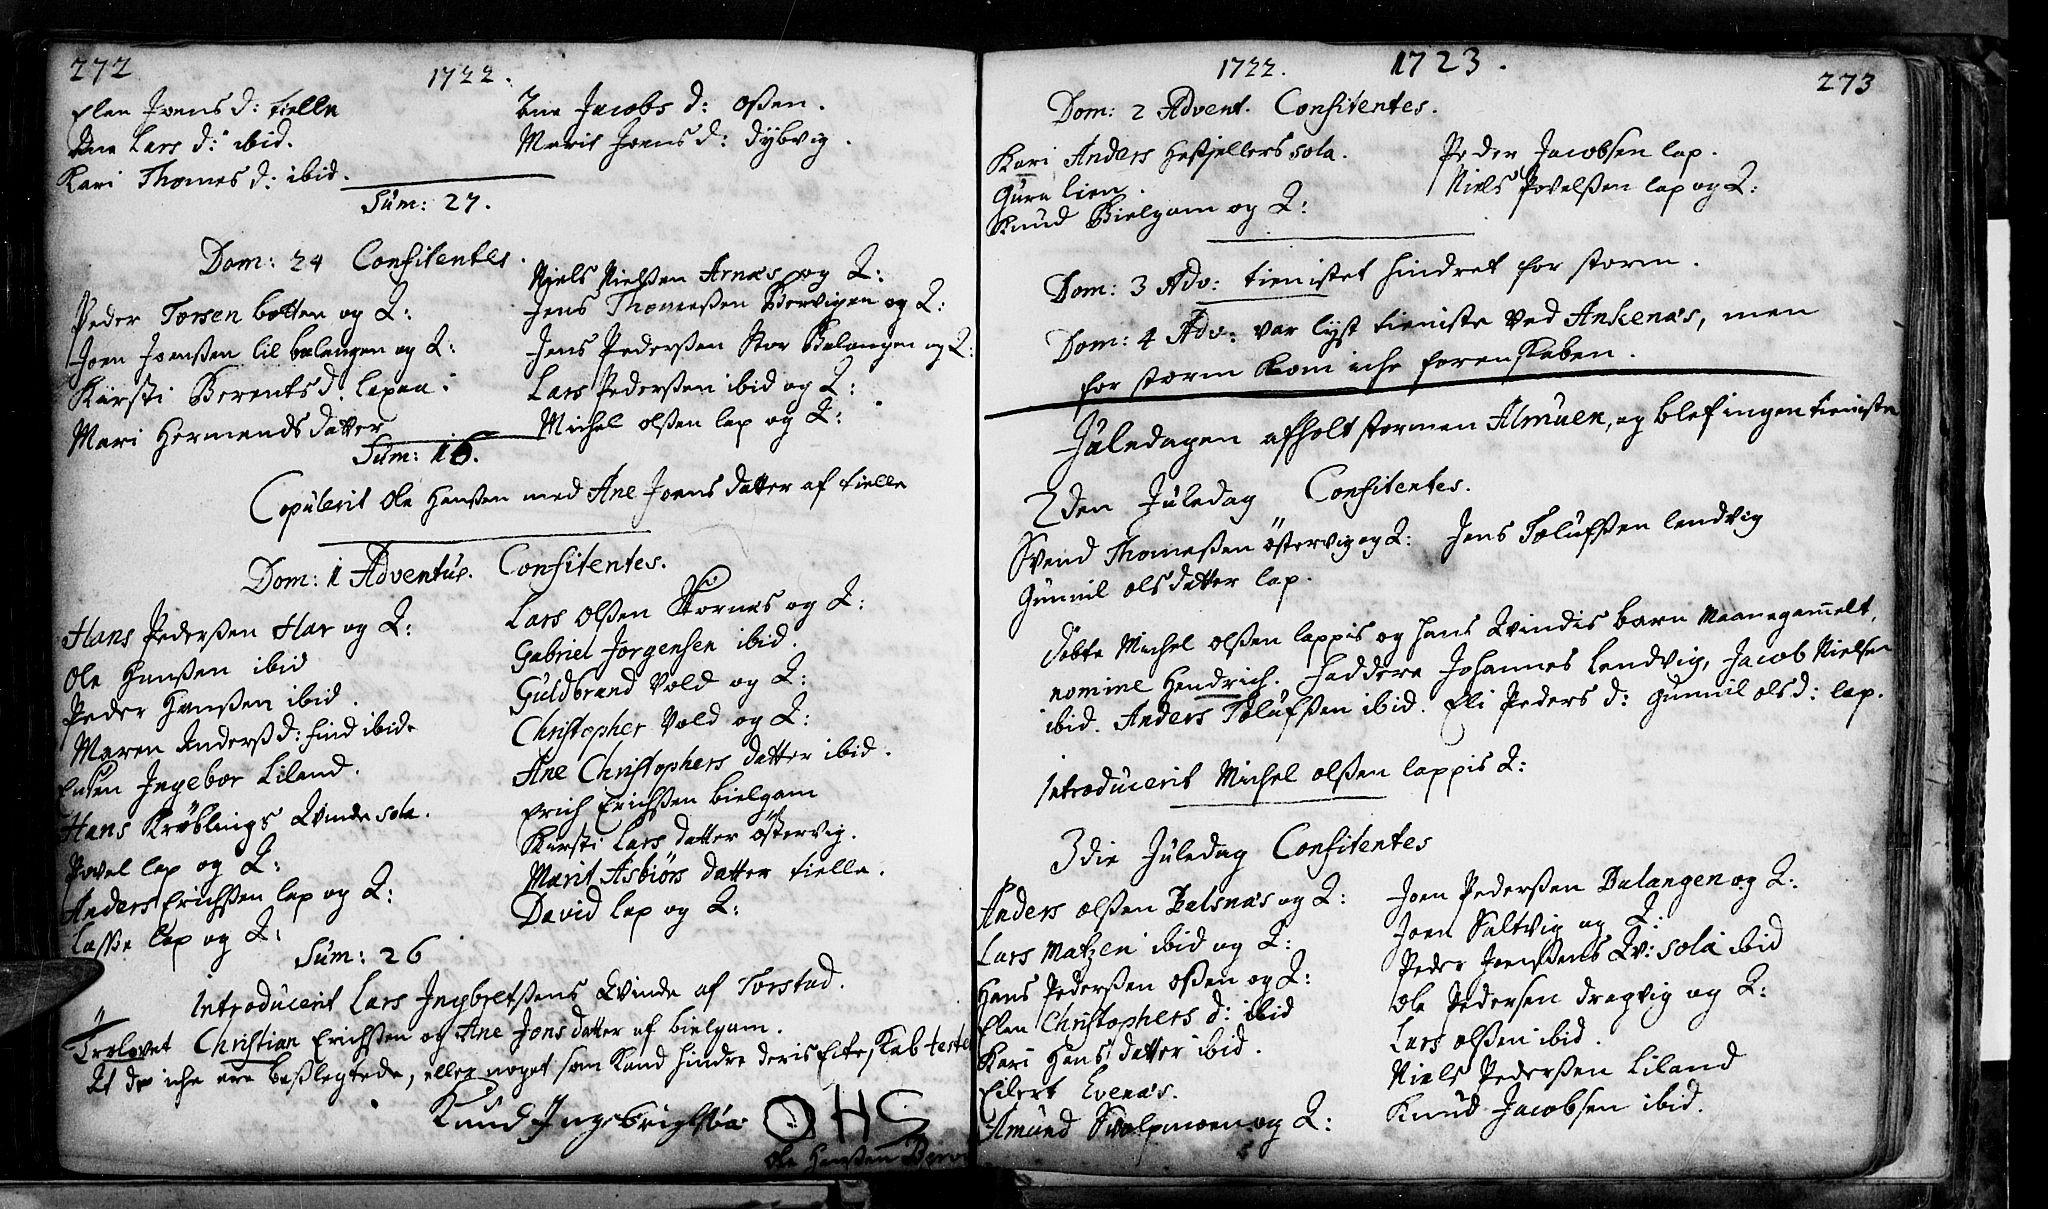 272
1722.
Elen Joens d: tielle
Ane Lars d: ibid.
Kari Thomes d: ibid.
Ane Jacobs d: Ossen.
Marit Joens d: dybvig.
Sum: 27.
Dom: 24 Confitentes.
Peder Torsen botten og Q:
Joen Joenssen lil balangen og Q:
Kirsti Berents d. lapea.
Mari Hermends datter
Niels Nielssen Arnæs og Q:
Jens Thomessen Bervigen og Q:
Jens Pederssen Stor Balangen og Q:
Lars Pederssen ibid og Q:
Michel olssen lap og Q:
Sum: 16.
Copulerit Ole Hanssen med Ane Joens datter af tielle
Dom: 1 Adventus. Confitentes.
Hans Pederssen Har og Q:
Ole Hanssen ibid
Peder Hanssen ibid.
Maren Anderss d: find ibide
Enken Ingebor Liland.
Hans Krøblings Qvinde sola.
Povel lap og Q:
Anders Erichssen lap og Q:
Lasse lap og Q:
Lars Olssen Stornæs og Q:
Gabriel Jorgensen ibid.
Guldbrand Vold og Q:
Christopher Vold og Q:
Ane Christophers datter ibid.
Erich Erichssen bielgam
Kirsti Lars datter östervig.
Marit Asbiörs datter tielle.
David lap og Q:
Sum: 26
Introducerit Lars Ingbretssens Qvinde af Torstad.
Trolovet Christian Erichssen og Ane Jons datter af bielgam.
At de iche ere besslegtede, eller noget som kand hindre deris Ecteskab teste
Knud Ingebrigtsön OHS
Ole Hanssen
1722. 1723.
273
Dom: 2 Advent. Confitentes.
Kari Anders Hestjellers sola.
Guru lien.
Knud Bielgam og Q:
Peder Jacobsen lap.
Niels Povelssen lap og Q:
Dom: 3 Adv: tienistet hindret for storm.
Dom: 4 Adv: var lyst tieniste ved Ankenæs, men
for storm kom iche forenskaben.
Juledagen afholt stormen Almuen, og blef ingen tieniste
2den Juledag Confitentes.
Svend Thomessen östervig og Q: Jens Tolufssen lendvig
Gunnil olsdatter lap.
Döbte Michel olssen lappis og hans Qvindis barn Maanegammelt,
nomine Hendrich. Faddere Johannes lendvig, Jacob Nielsen
ibid. Anders Tolufssen ibid. Eli Peders d: Gunnil ols d: lap.
Introducerit Michel olssen lappis Q:
3die Juledag Confitentes
Anders olssen Balsnæs og Q:
Lars Matzen ibid og Q:
Hans Pederssen ossen og Q:
Elen Christophers d: ibid
Kari Hans datter ibid.
Edert Evenæs.
Amund Svolpmoen og Q:
Joen Pederssen Balangen og Q:
Joen Saltvig og Q:
Peder Joenssens Qv: sola ibid
Ole Pedersen dragvig og Q:
Lars olssen ibid.
Niels Pederssen Liland
Knud Jacobsen ibid.